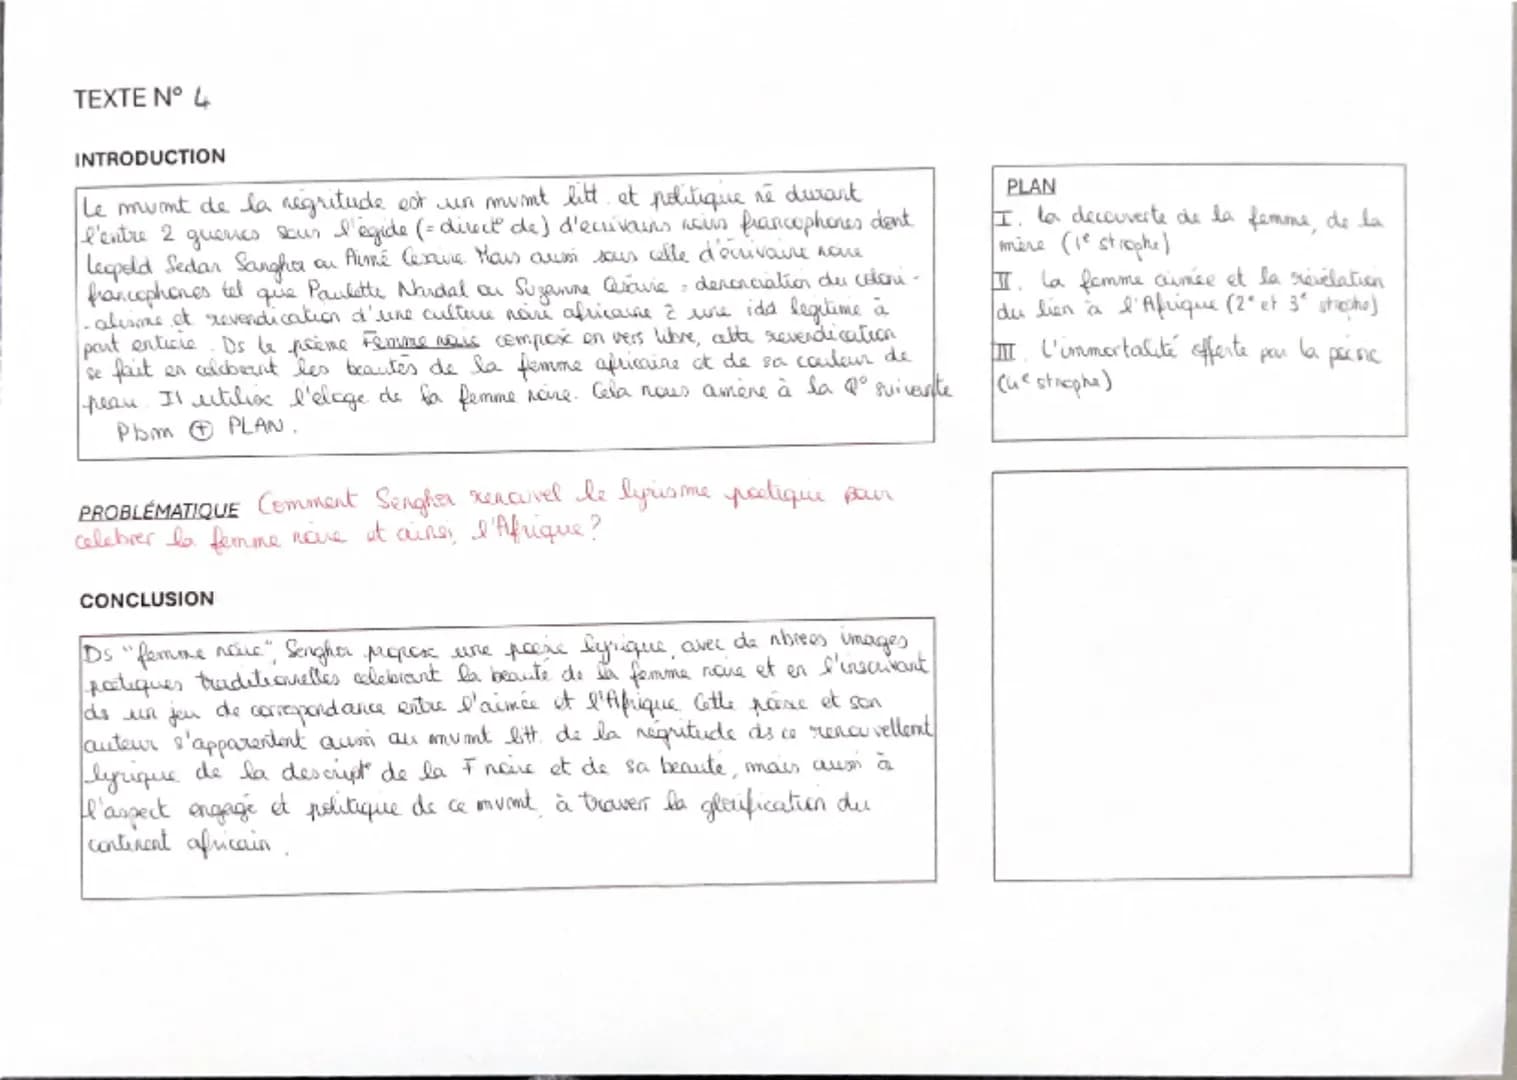 TEXTE N° 4
INTRODUCTION
Le mvmt de la négritude est un mvmt litt. et politique né durant
l'entre 2 guerres sous l'égide (= direct° de) d'écrivains noirs francophones dont
Leopold Sedar Sangho ou Aimé Césaire. Mais aussi sous celle d'écrivaire noire
francophones tel que Paulette Nardal ou Suzanne Césaire = denonciation du coloni-
-alisme et revendication d'une culture noire africaine à une idd legitime à
part entière. Ds le poème Femme noire composé en vers libre, cette revendication
se fait en célébrant les beautés de la femme africaine et de sa couleur de
peau. Il utilise l'éloge de la femme noire. Cela nous amène à la Q° suivante
Pbm ⊕ PLAN.
PLAN
I. la decouverte de la femme, de la
mère (1e strophe)
II. La femme aimée et la révélation
du lien à l'Afrique (2e et 3e strophe)
III. L'immortalité offerte par la poésie
(4e strophe)
PROBLÉMATIQUE Comment Senghor renouvel le lyrisme poétique pour
celebrer la femme noire et ainsi, l'Afrique?
CONCLUSION
Ds "femme noire", Senghor propose une poésie lyrique, avec de nbrees images
poétiques traditionnelles celebrant la beauté de la femme noire et en l'inscrivant
ds un jeu de correspondance entre l'aimée et l'Afrique. Cette poésie et son
auteur s'apparentent aussi au mvmt litt. de la négritude ds ce renouvellemt
lyrique de la descript° de la F noire et de sa beauté, mais aussi à
l'aspect engagé et politique de ce mvmt, à travers la glorification du
continent africain.